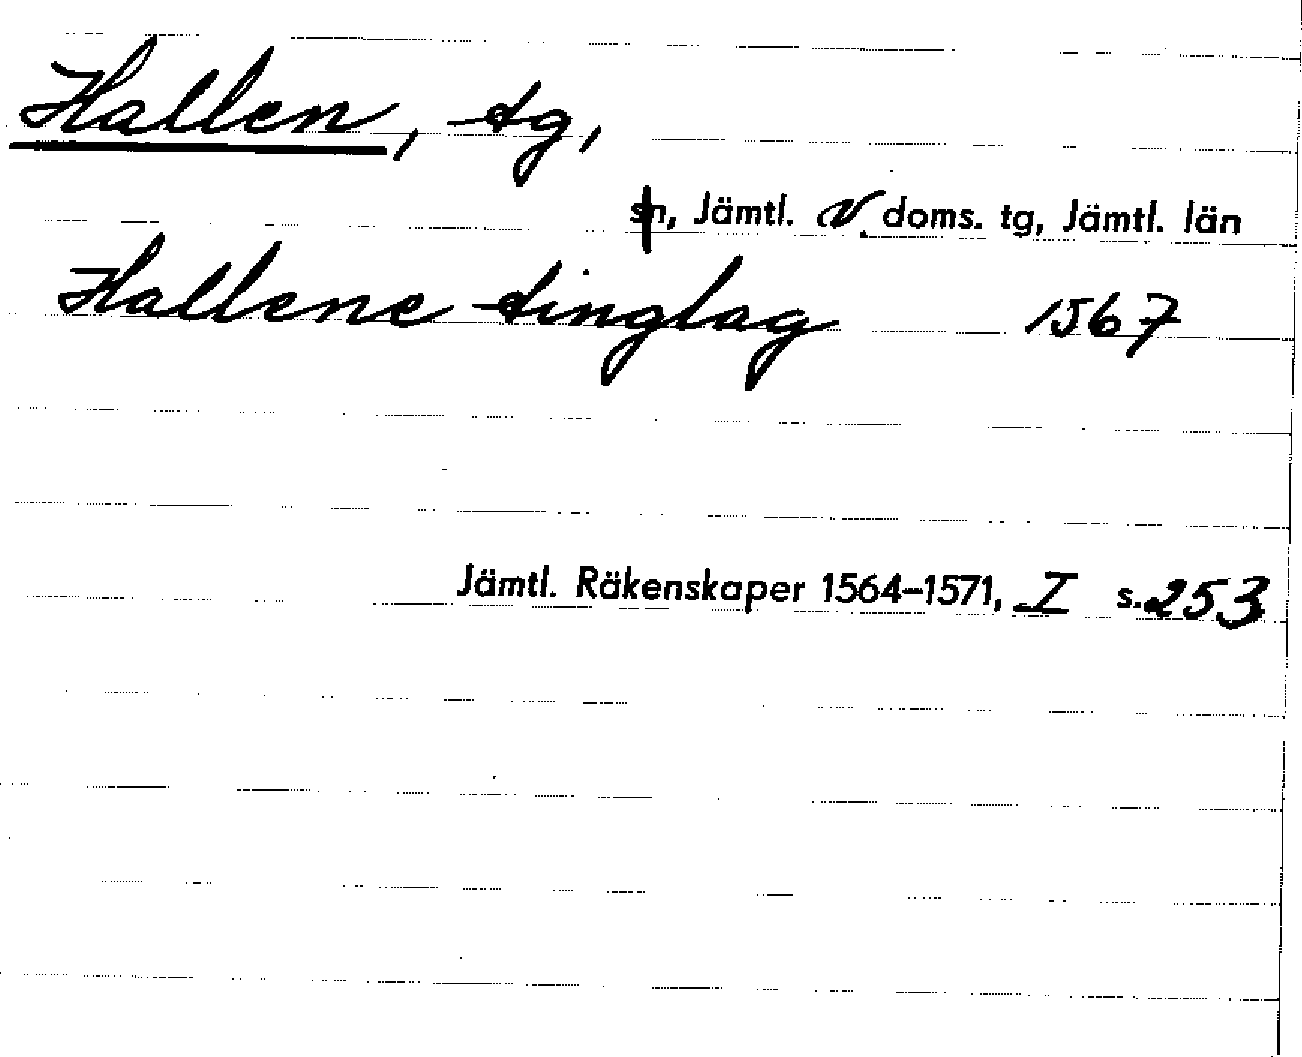 Hallen, tg,
sn, Jämtl. V. doms. tg, Jämtl. län
Hallene tinglag 1567
Jämtl. Räkenskaper 1564–1571, I s. 253